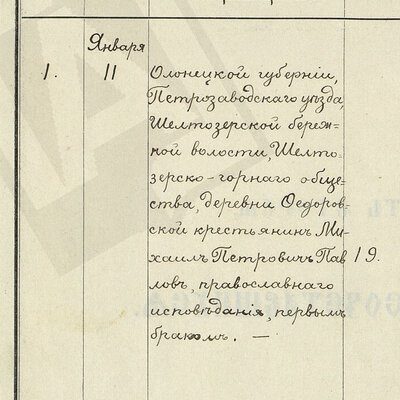 Января
1. 11 Олонецкой губернiи,
Петрозаводскаго уѣзда,
Шелтозерской береж=
ной волости, Шелто=
зерско-горнаго обще=
ства, деревни Ѳедоров=
ской крестьянинъ Ми=
хаилъ Петровичъ Пав 19.
ловъ, православнаго
исповѣданiя, первымъ
бракомъ. —